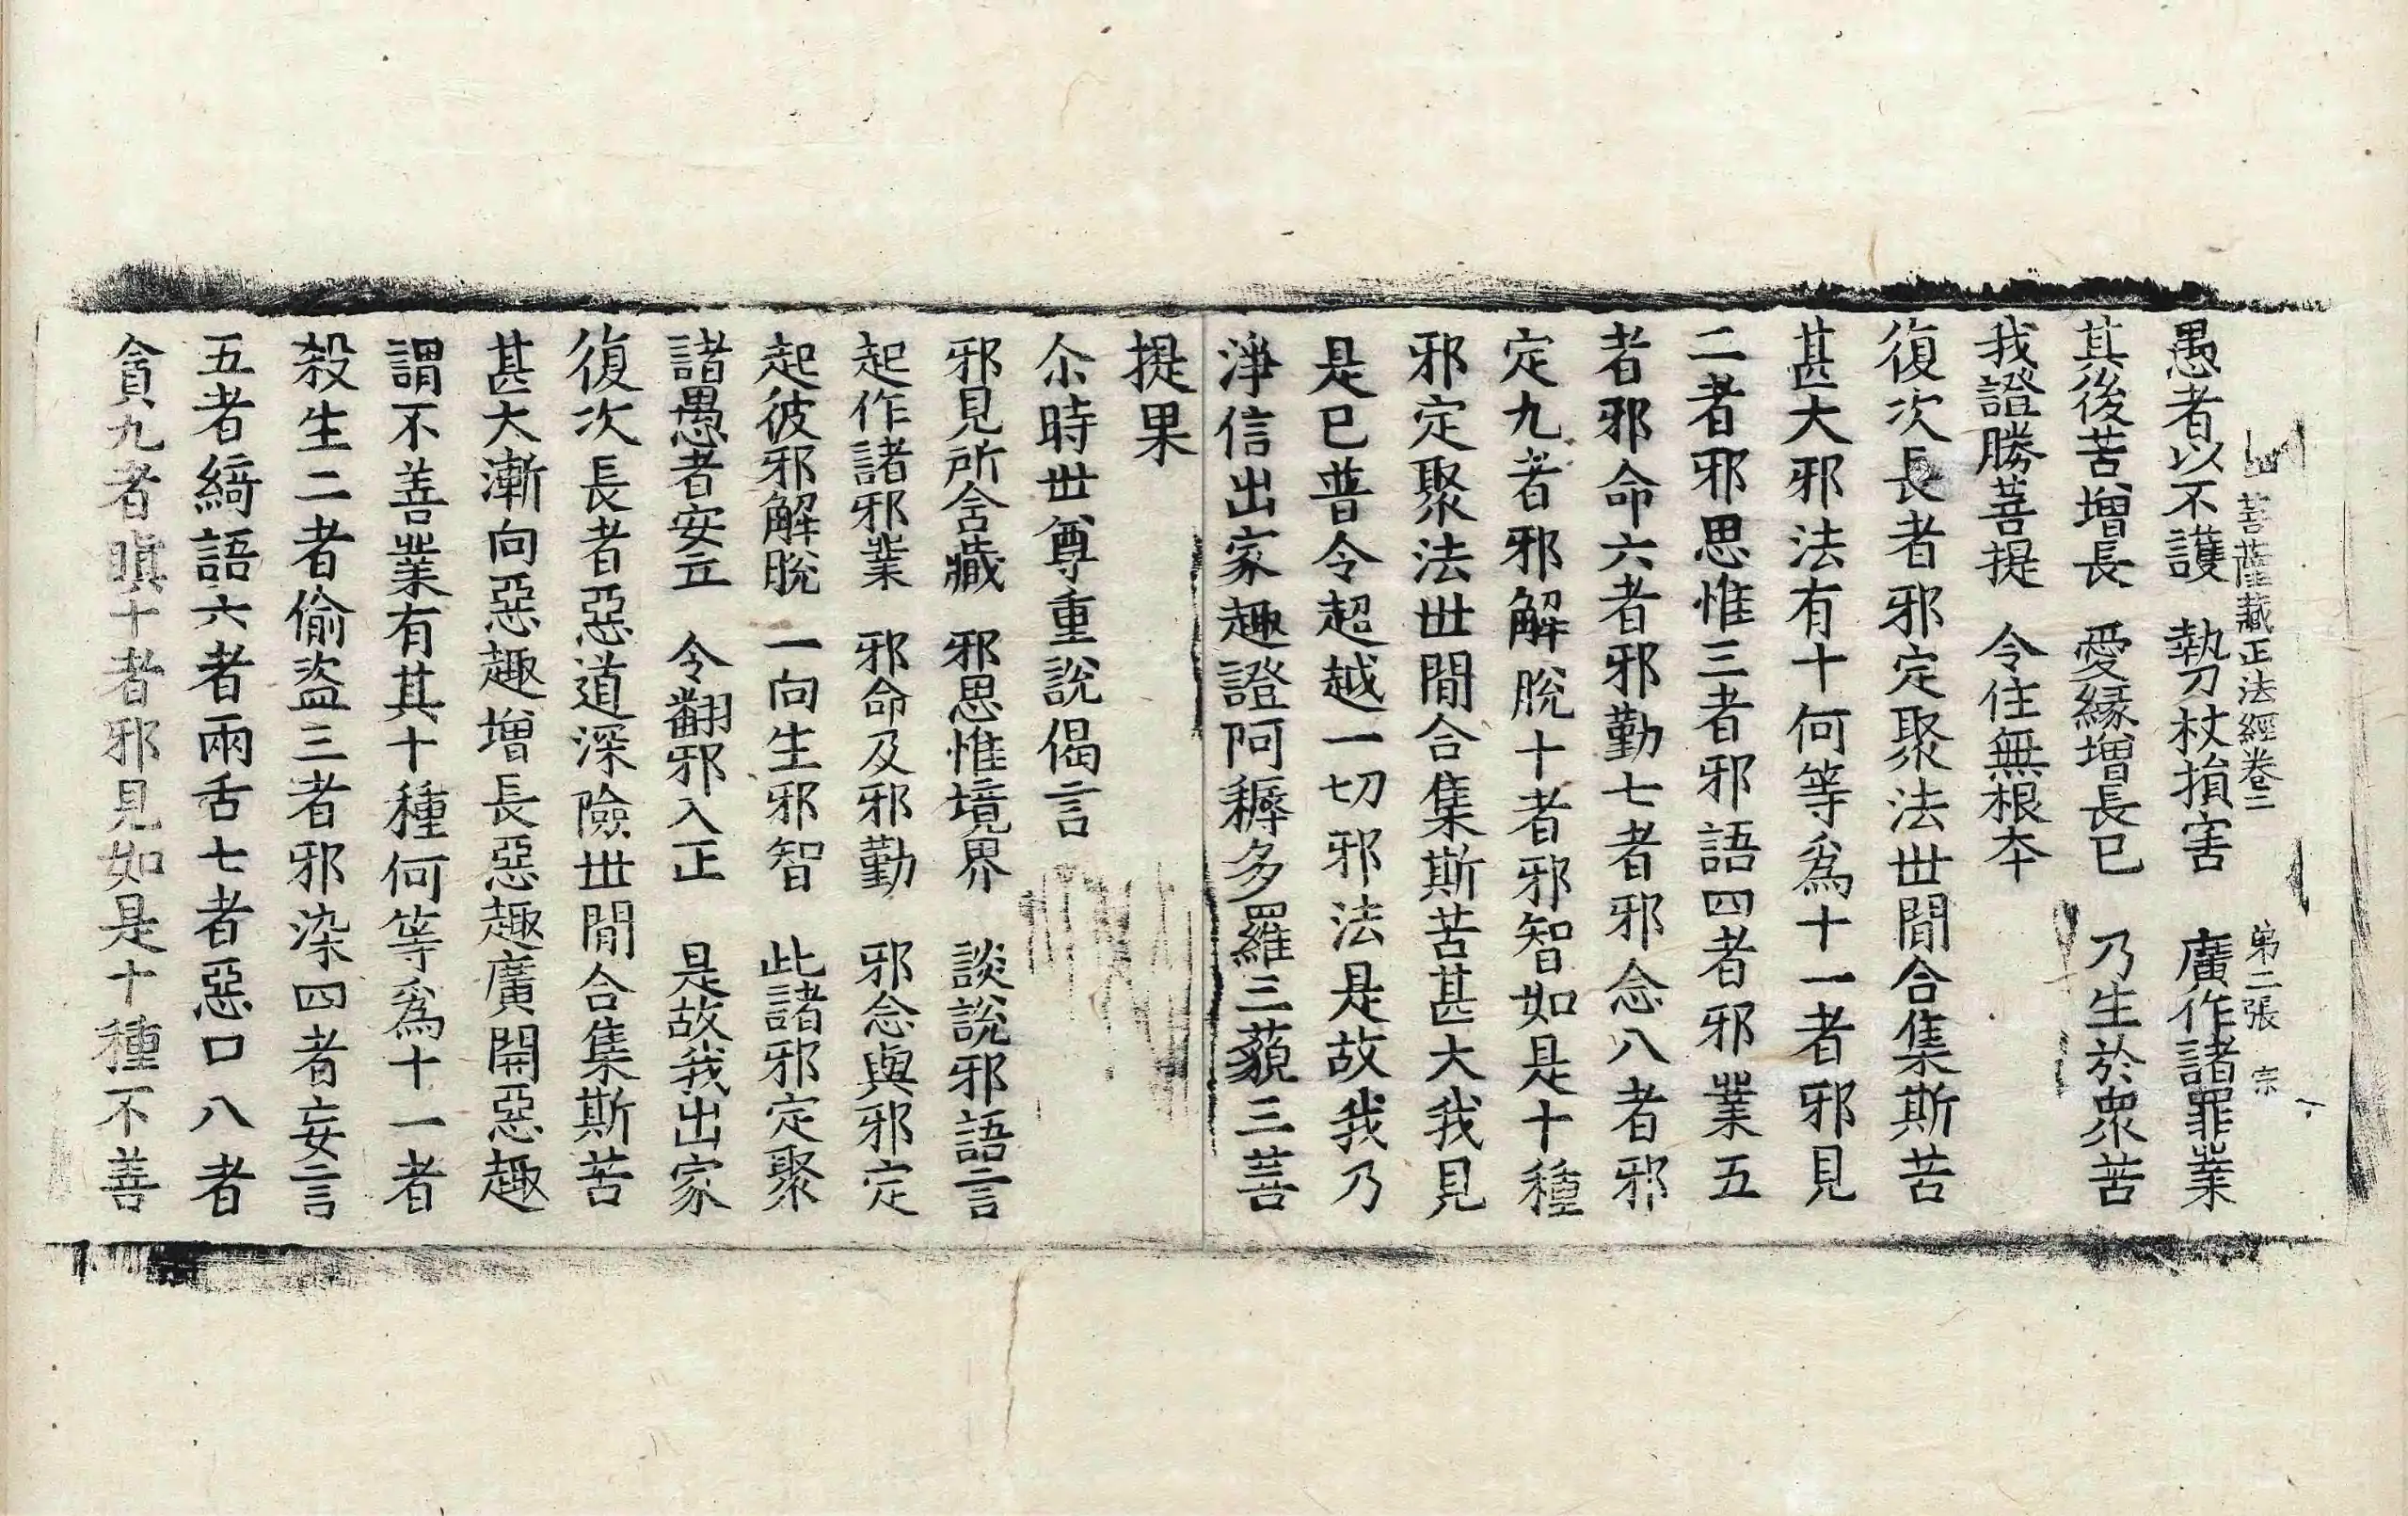 菩薩藏正法經卷二 第二張 宗
愚者以不護 執刀杖損害 廣作諸罪業
其後苦增長 愛緣增長已 乃生於衆苦
我證勝菩提 令住無根本
復次長者邪定聚法世間合集斯苦
甚大邪法有十何等爲十一者邪見
二者邪思惟三者邪語四者邪業五
者邪命六者邪勤七者邪念八者邪
定九者邪解脫十者邪智如是十種
邪定聚法世間合集斯苦甚大我見
是已普令超越一切邪法是故我乃
淨信出家趣證阿耨多羅三藐三菩
提果
尒時世尊重說偈言
邪見所含藏 邪思惟境界 談說邪語言
起作諸邪業 邪命及邪勤 邪念與邪定
起彼邪解脫 一向生邪智 此諸邪定聚
諸愚者安立 令翻邪入正 是故我出家
復次長者惡道深險世間合集斯苦
甚大漸向惡趣增長惡趣廣開惡趣
謂不善業有其十種何等爲十一者
殺生二者偷盜三者邪染四者妄言
五者綺語六者兩舌七者惡口八者
貪九者瞋十者邪見如是十種不善